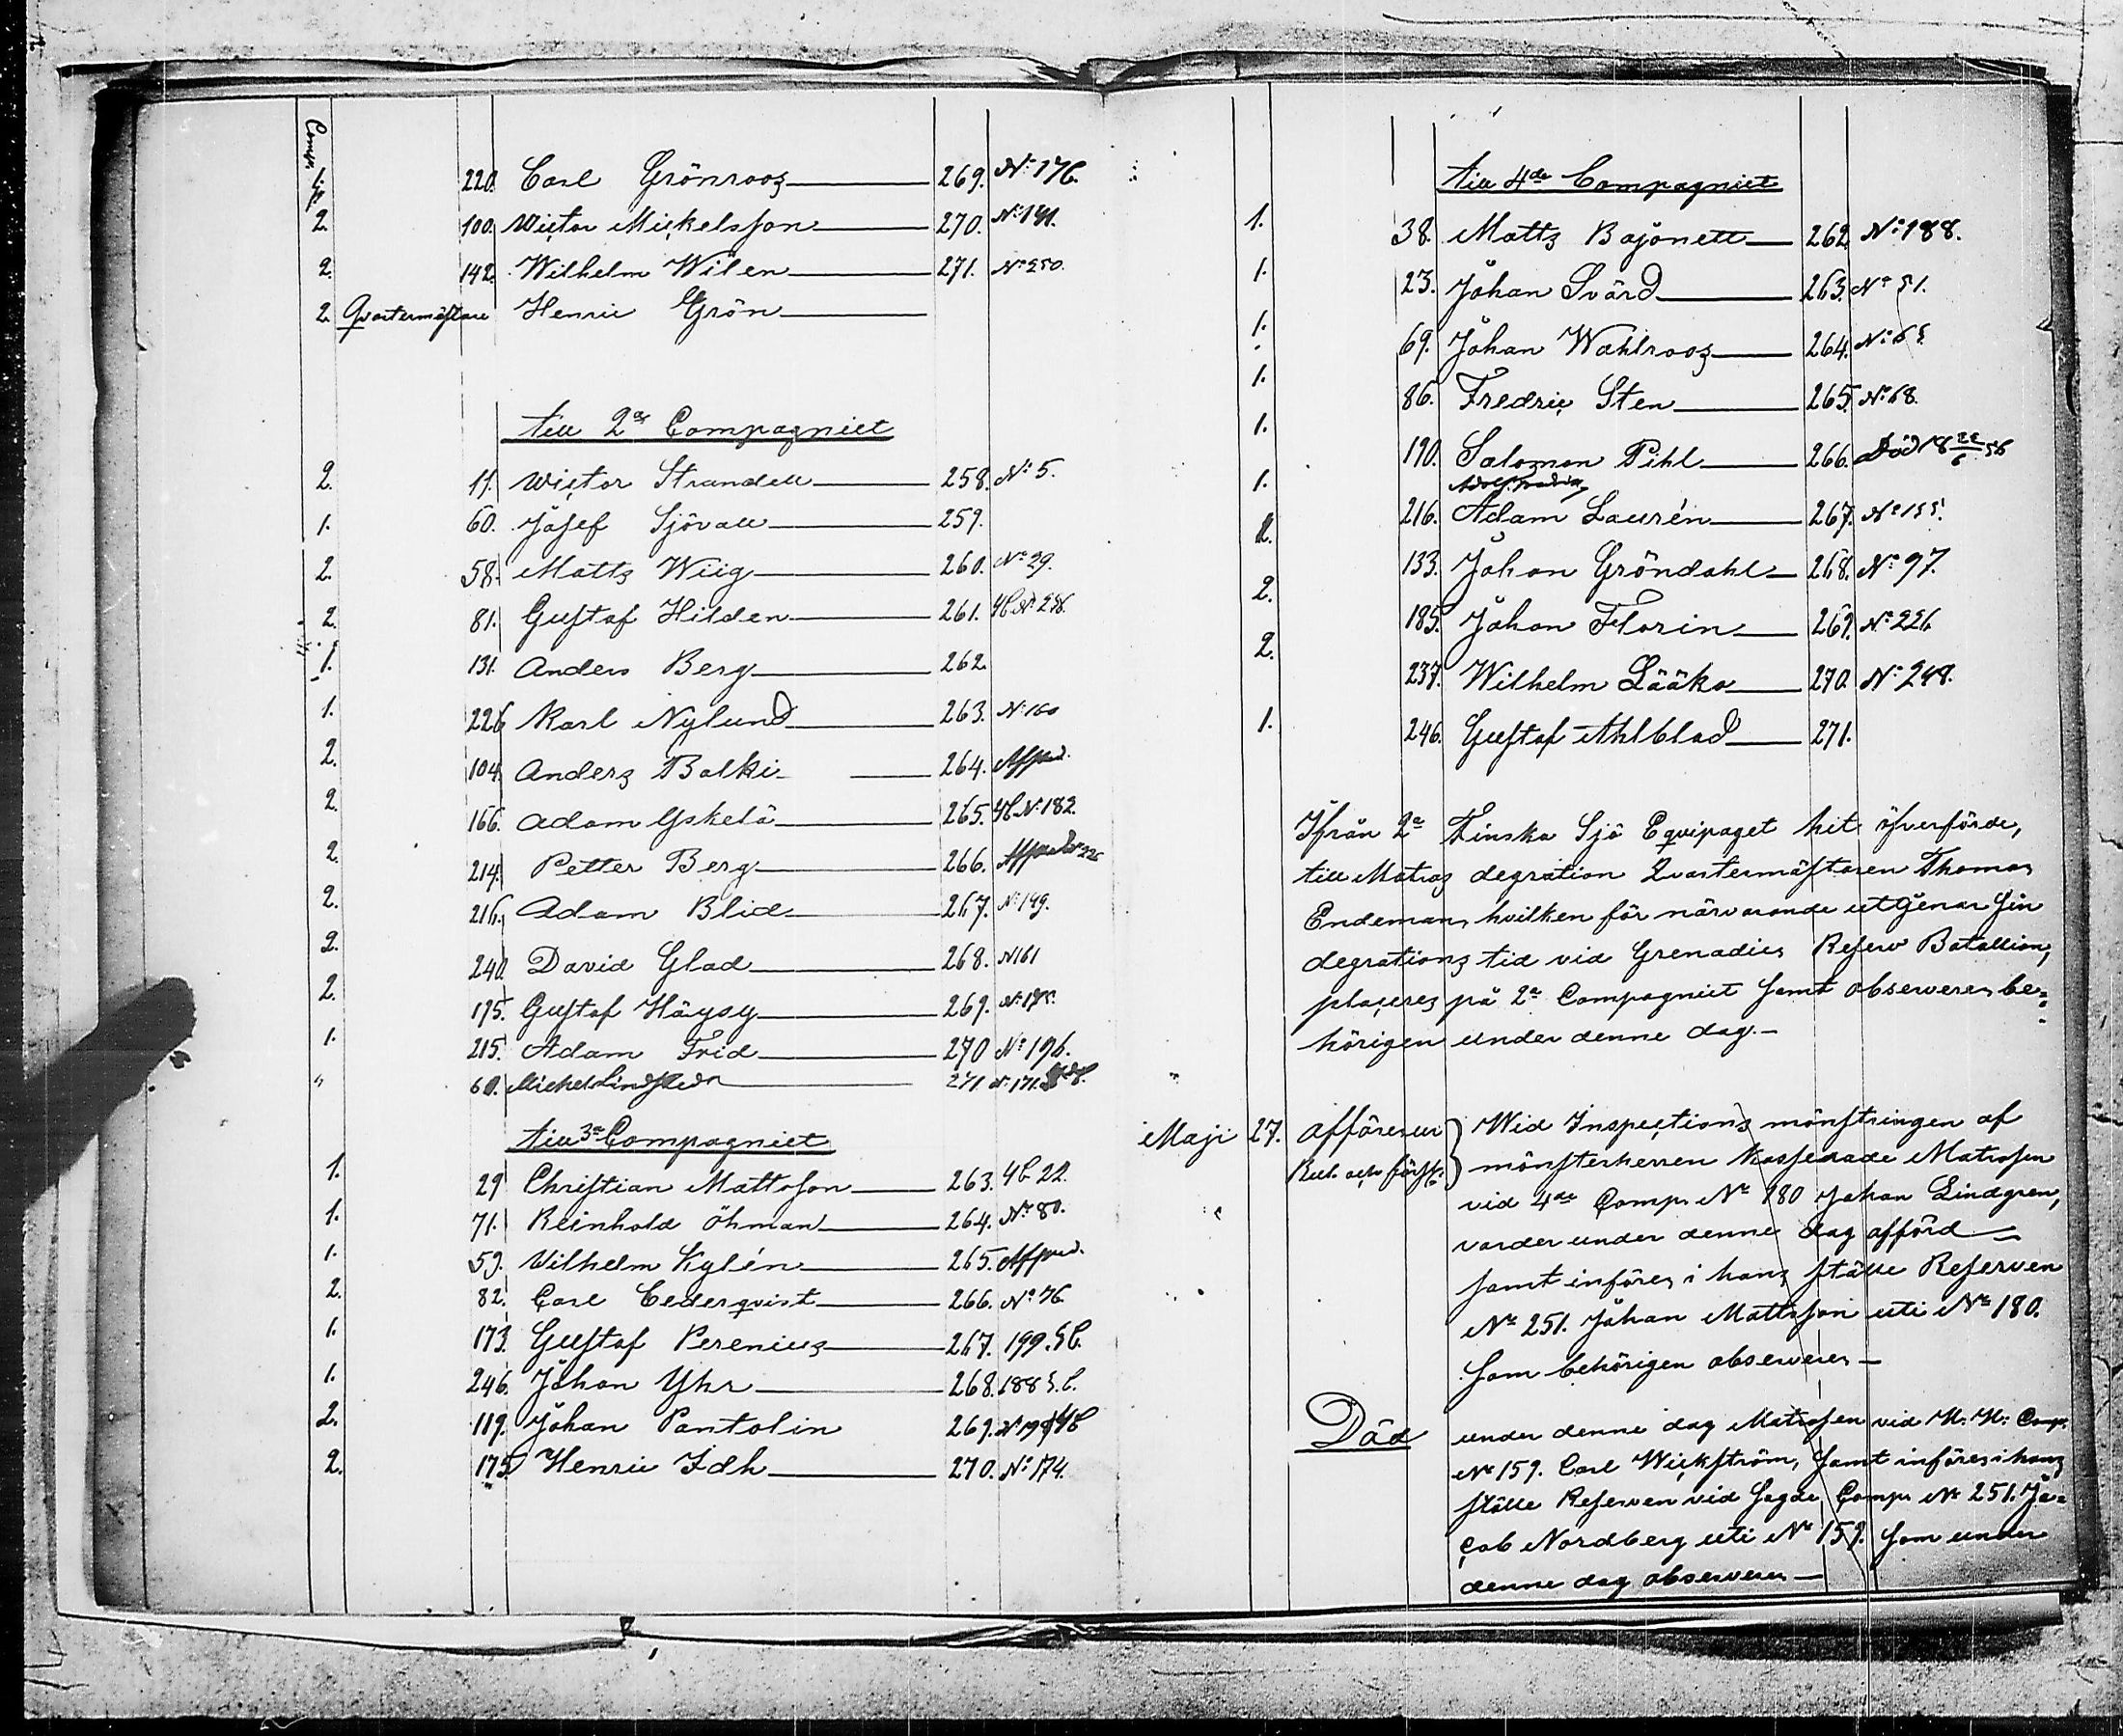 Comp.
4. 220. Carl Grönroos 269. No 176.
2. 100. Wictor Mickelsson 270. No 141.
2. 142. Wilhelm Wilen 271. No 250.
2. Qvartermästare Henric Grön
till 2a Compagniet
2. 11. Wictor Strandell 258. No 5.
1. 60. Josef Sjövall 259.
2. 58. Matts Wiig 260. No 29.
2. 81. Gustaf Hilden 261. 4C No 236.
1. 131. Anders Berg 262
1. 226 Karl Nylund 263. No 160
2. 104. Anders Balki 264. Afsked.
2. 166. Adam Yskelä 265. 4C No 182.
2. 214. Petter Berg 266. 226
2. 216. Adam Blid 267. No 149.
2. 240. David Glad 268. N 161
2. 195. Gustaf Häysy 269. No
1. 215. Adam Frid 270 No 196.
" 60. Michel Lindstedt 271 No 171.
till 3e Compagniet
1. 29 Christian Mattsson 263. 4C 22.
1. 71. Reinhold Öhman 264. No 80.
1. 59. Wilhelm Kylén 265. Afsked.
2. 82. Carl Cederqvist 266. No 76
1. 173. Gustaf Perenius 267. 199. 3C.
1. 246. Johan Yhr 268. 188 3.C.
2. 119. Johan Pantolin 269. N 4C
2. 175 Henric Idh 270. No 174.
till 4de Compagniet
1. 38. Matts Bajonett 262. No 188.
1. 23. Johan Svärd 263. No 51.
1. 69. Johan Wahlroos 264. No 65
1. 86. Fredric Sten 265. No 68.
1. 190. Salomon Pihl 266. Död 18 22/6 56
1. 216. Adam Laurén 267. No 155.
2. 133. Johan Gröndahl 268. No 97.
2. 185. Johan Florin 269. No 226
2. 237. Wilhelm Lääko 270. No 248.
1. 246. Gustaf Ahlblad 271.
Ifrån 2a Finska Sjö Equipaget hit öfverförde,
till Matros degration Qvartermästaren Thomas
Endeman, hvilken för närvarande utgjenar sin
degrations tid vid Grenadier Reserv Batallion,
placeres på 2a Compagniet samt observeres be=
hörigen under denne dag.—
Maji 27. afföres ur Wid Inspections mönstringen af
Rul. och förstr. mönsterherren kasserade Matrosen
vid 4de Comp. No 180 Johan Lindgren,
varder under denne dag afförd —
samt införes i hans ställe Reserven
No 251. Johan Mattsson uti No 180.
som behörigen observeres —
Död under denne dag Matrosen vid M. M: Comp.
No 159. Carl Wickström, samt införes i hans
ställe Reserven vid sagde Comp. No 251. Ja=
cob Nordberg uti No 159. som under
denne dag observeres —